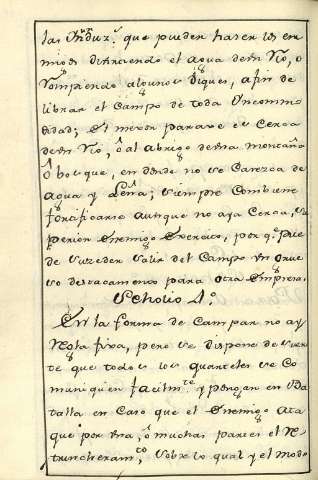 las Ynduz.s que pueden hazer los ene
migos divirtiendo el agua de un Rio, o
Rompiendo algunos Diques, afin de
librar el Campo de toda Yncommo
didad; El mejor parage es cerca
de un Rio, ô al abrigo de una montaña
ô bosque, en donde no se Carezca de
agua y Leña; siempre Combiene
fortificarse aunque no aya Cerca, Su
perior Enemigo Exercito, por q.e Pue
de suzeder Salir del Campo un grue
so destacamento para otra Empresa.
Scholio 4.º
En la forma de Campar no ay
Regla fixa, pero se dispone de suer
te que todos los quarteles se Co
muniquen facilm.te y pongan en Ba
talla en Caso que el Enemigo Ata
que por una, ô muchas partes el Re
trincheram.to, Sobre lo qual y el modo